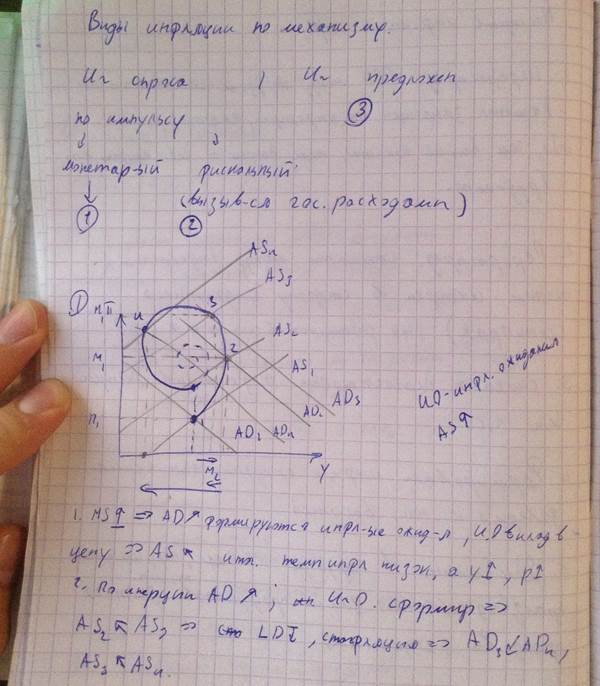 Виды инфляции по механизму.
Ин спроса | Ин предложен
по импульсу ③
монетарный фискальный
① (вызыв-ся гос. расходами)
②
AS4
AS3
① M,П 4 3
AS2
M1 2 AS1
П1 AD2 AD3
AD1 AD4
Y
M2
ИО-инфл. ожидания
AS↑
1. MS↑ => AD↗ формируются инфл-ые ожид-я, И.О вклад в
цену => AS↖ темп инфл низок, а y↑, p↑
2. По инерции AD↗, ИнО. сформир =>
AS2 ↖ AS3 => LD↓, стагфляция => AD3↙AD4,
AS3 ↖ AS4.